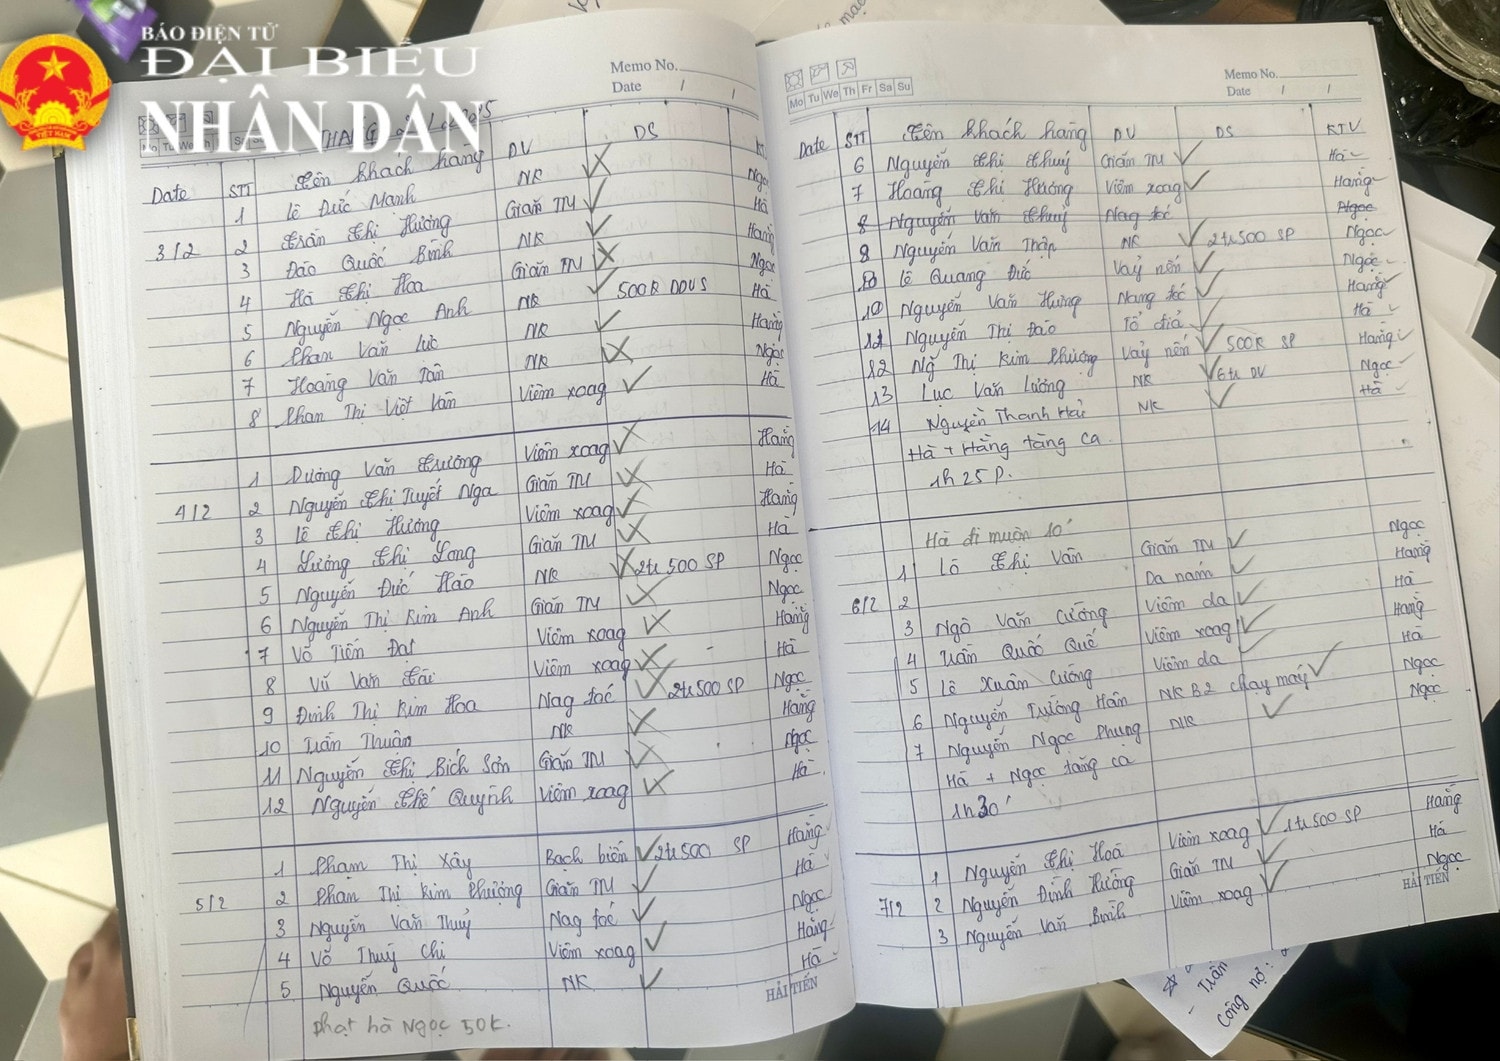 BÁO ĐIỆN TỬ
ĐẠI BIỂU
NHÂN DÂN
Memo No.
Date / /
Date STT Tên khách hàng DV DS
1 Lê Đức Mạnh NK Ngọc
3/2 2 Trần Thị Hương Giãn TM Hà
3 Đào Quốc Bình NK Hằng
4 Hà Thị Hoa Giãn TM Ngọc
5 Nguyễn Ngọc Anh NK 500K DDVS Hà
6 Phan Văn Lực NK Hằng
7 Hoàng Văn Tân NK Ngọc
8 Phan Thị Việt Vân Viêm xoag Hà
1 Dương Văn Trường Viêm xoag Hằng
4/2 2 Nguyễn Thị Tuyết Nga Giãn TM Hà
3 Lê Thị Hương Viêm xoag Hằng
4 Lương Thị Long Giãn TM Hà
5 Nguyễn Đức Hào NK 2tr500 SP Ngọc
6 Nguyễn Thị Kim Anh Giãn TM Ngọc
7 Võ Tiến Đạt Viêm xoag Hằng
8 Vũ Văn Tài Viêm xoag Hà
9 Đinh Thị Kim Hoa Nag tóc 2tr500 SP Ngọc
10 Trần Thuận NK Hằng
11 Nguyễn Thị Bích Sơn Giãn TM Ngọc
12 Nguyễn Thế Quỳnh Viêm xoag Hà
1 Phạm Thị Xây Bạch biến 2tr500 SP Hằng
5/2 2 Phan Thị Kim Phượng Giãn TM Hà
3 Nguyễn Văn Thuỷ Nag tóc Ngọc
4 Võ Thuỳ Chi Viêm xoag Hằng
5 Nguyễn Quốc NK Hà
phạt hà Ngọc 50k.
HẢI TIẾN
Mo Tu We Th Fr Sa Su
Memo No.
Date / /
Date STT Tên khách hàng DV DS KTV
6 Nguyễn Thị Thuý Giãn TM Hà
7 Hoàng Thị Hương Viêm xoag Hằng
8 Nguyễn Văn Thuỷ Nag tóc Ngọc
9 Nguyễn Văn Thập NK 2tr500 SP Ngọc
10 Lê Quang Đức Vảy nến Ngọc
Nguyễn Văn Hưng Nang tóc Hằng
Nguyễn Thị Đào Tổ đỉa Hà
12 Ng Thị Kim Phượng Vảy nến 500K SP Hằng
13 Lục Văn Lương NK 6tr DV Ngọc
14 Nguyễn Thanh Hải NK Hà
Hà + Hằng tăng ca
1h 25 p.
Hà đi muộn 10'
1 Lô Thị Vân Giãn TM Ngọc
6/2 2 Da nám Hằng
3 Ngô Văn Cường Viêm da Hà
4 Trần Quốc Quế Viêm xoag Hằng
5 Lê Xuân Cường Viêm da Hà
6 Nguyễn Trường Hân NK B2 chạy máy Ngọc
7 Nguyễn Ngọc Phung NK Ngọc
Hà + Ngọc tăng ca
1h30'
1 Nguyễn Thị Hoà Viêm xoag 1tr500 SP Hằng
7/2 2 Nguyễn Đình Hướng Giãn TM Hà
3 Nguyễn Văn Bình Viêm xoag Ngọc
HẢI TIẾN
- Trần
công nợ: